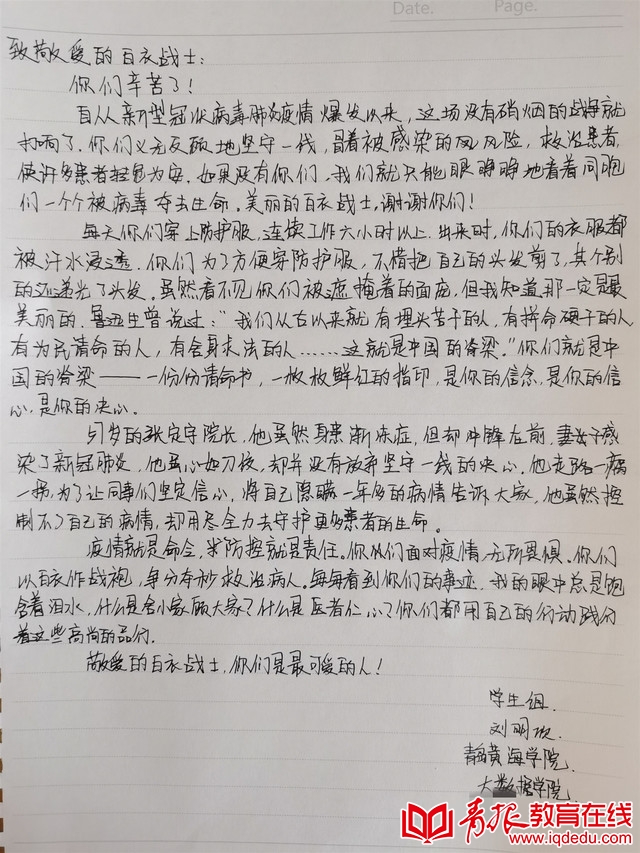 Date.	Page.
致敬爱的白衣战士:
你们辛苦了!
自从新型冠状病毒肺炎疫情爆发以来,这场没有硝烟的战争就
打响了.你们义无反顾地坚守一线,冒着被感染的风风险,救治患者,
使许多患者转危为安.如果没有你们,我们就只能眼睁睁地看着同胞
们一个个被病毒夺去生命.美丽的白衣战士,谢谢你们!
每天你们穿上防护服,连续工作六小时以上.出来时,你们的衣服都
被汗水浸透.你们为了方便穿防护服,不惜把自己的头发剪了,某个别
的还递光了头发.虽然看不见你们被遮掩着的面庞,但我知道那一定是最
美丽的.鲁迅先生曾说过:“我们从古以来就有埋头苦干的人,有拼命硬干的人
有为民请命的人,有舍身求法的人……这就是中国的脊梁.”你们就是中
国的脊梁——一份份请命书,一枚枚鲜红的指印,是你的信念,是你的信
心,是你的决心.
57岁的张定宇院长,他虽然身患渐冻症,但却冲锋在前,妻子感
染了新冠肺炎,他虽心如刀绞,却并没有放弃坚守一线的决心.他走路一瘸
一拐,为了让同事们坚定信心,将自己隐瞒一年多的病情告诉大家,他虽然控
制不了自己的病情,却用尽全力去守护更多患者的生命。
疫情就是命令,防控就是责任.你们面对疫情无所畏惧.你们
以白衣作战袍,争分夺秒救治病人.每每看到你们的事迹,我的眼中总是饱
含着泪水,什么是舍小家顾大家?什么是医者仁心?你们都用自己的行动践行
着这些高尚的品行.
敬爱的白衣战士,你们是最可爱的人!
学生组.
刘明
青岛黄海学院.
大数据学院
青报教育在线
www.iqdedu.com